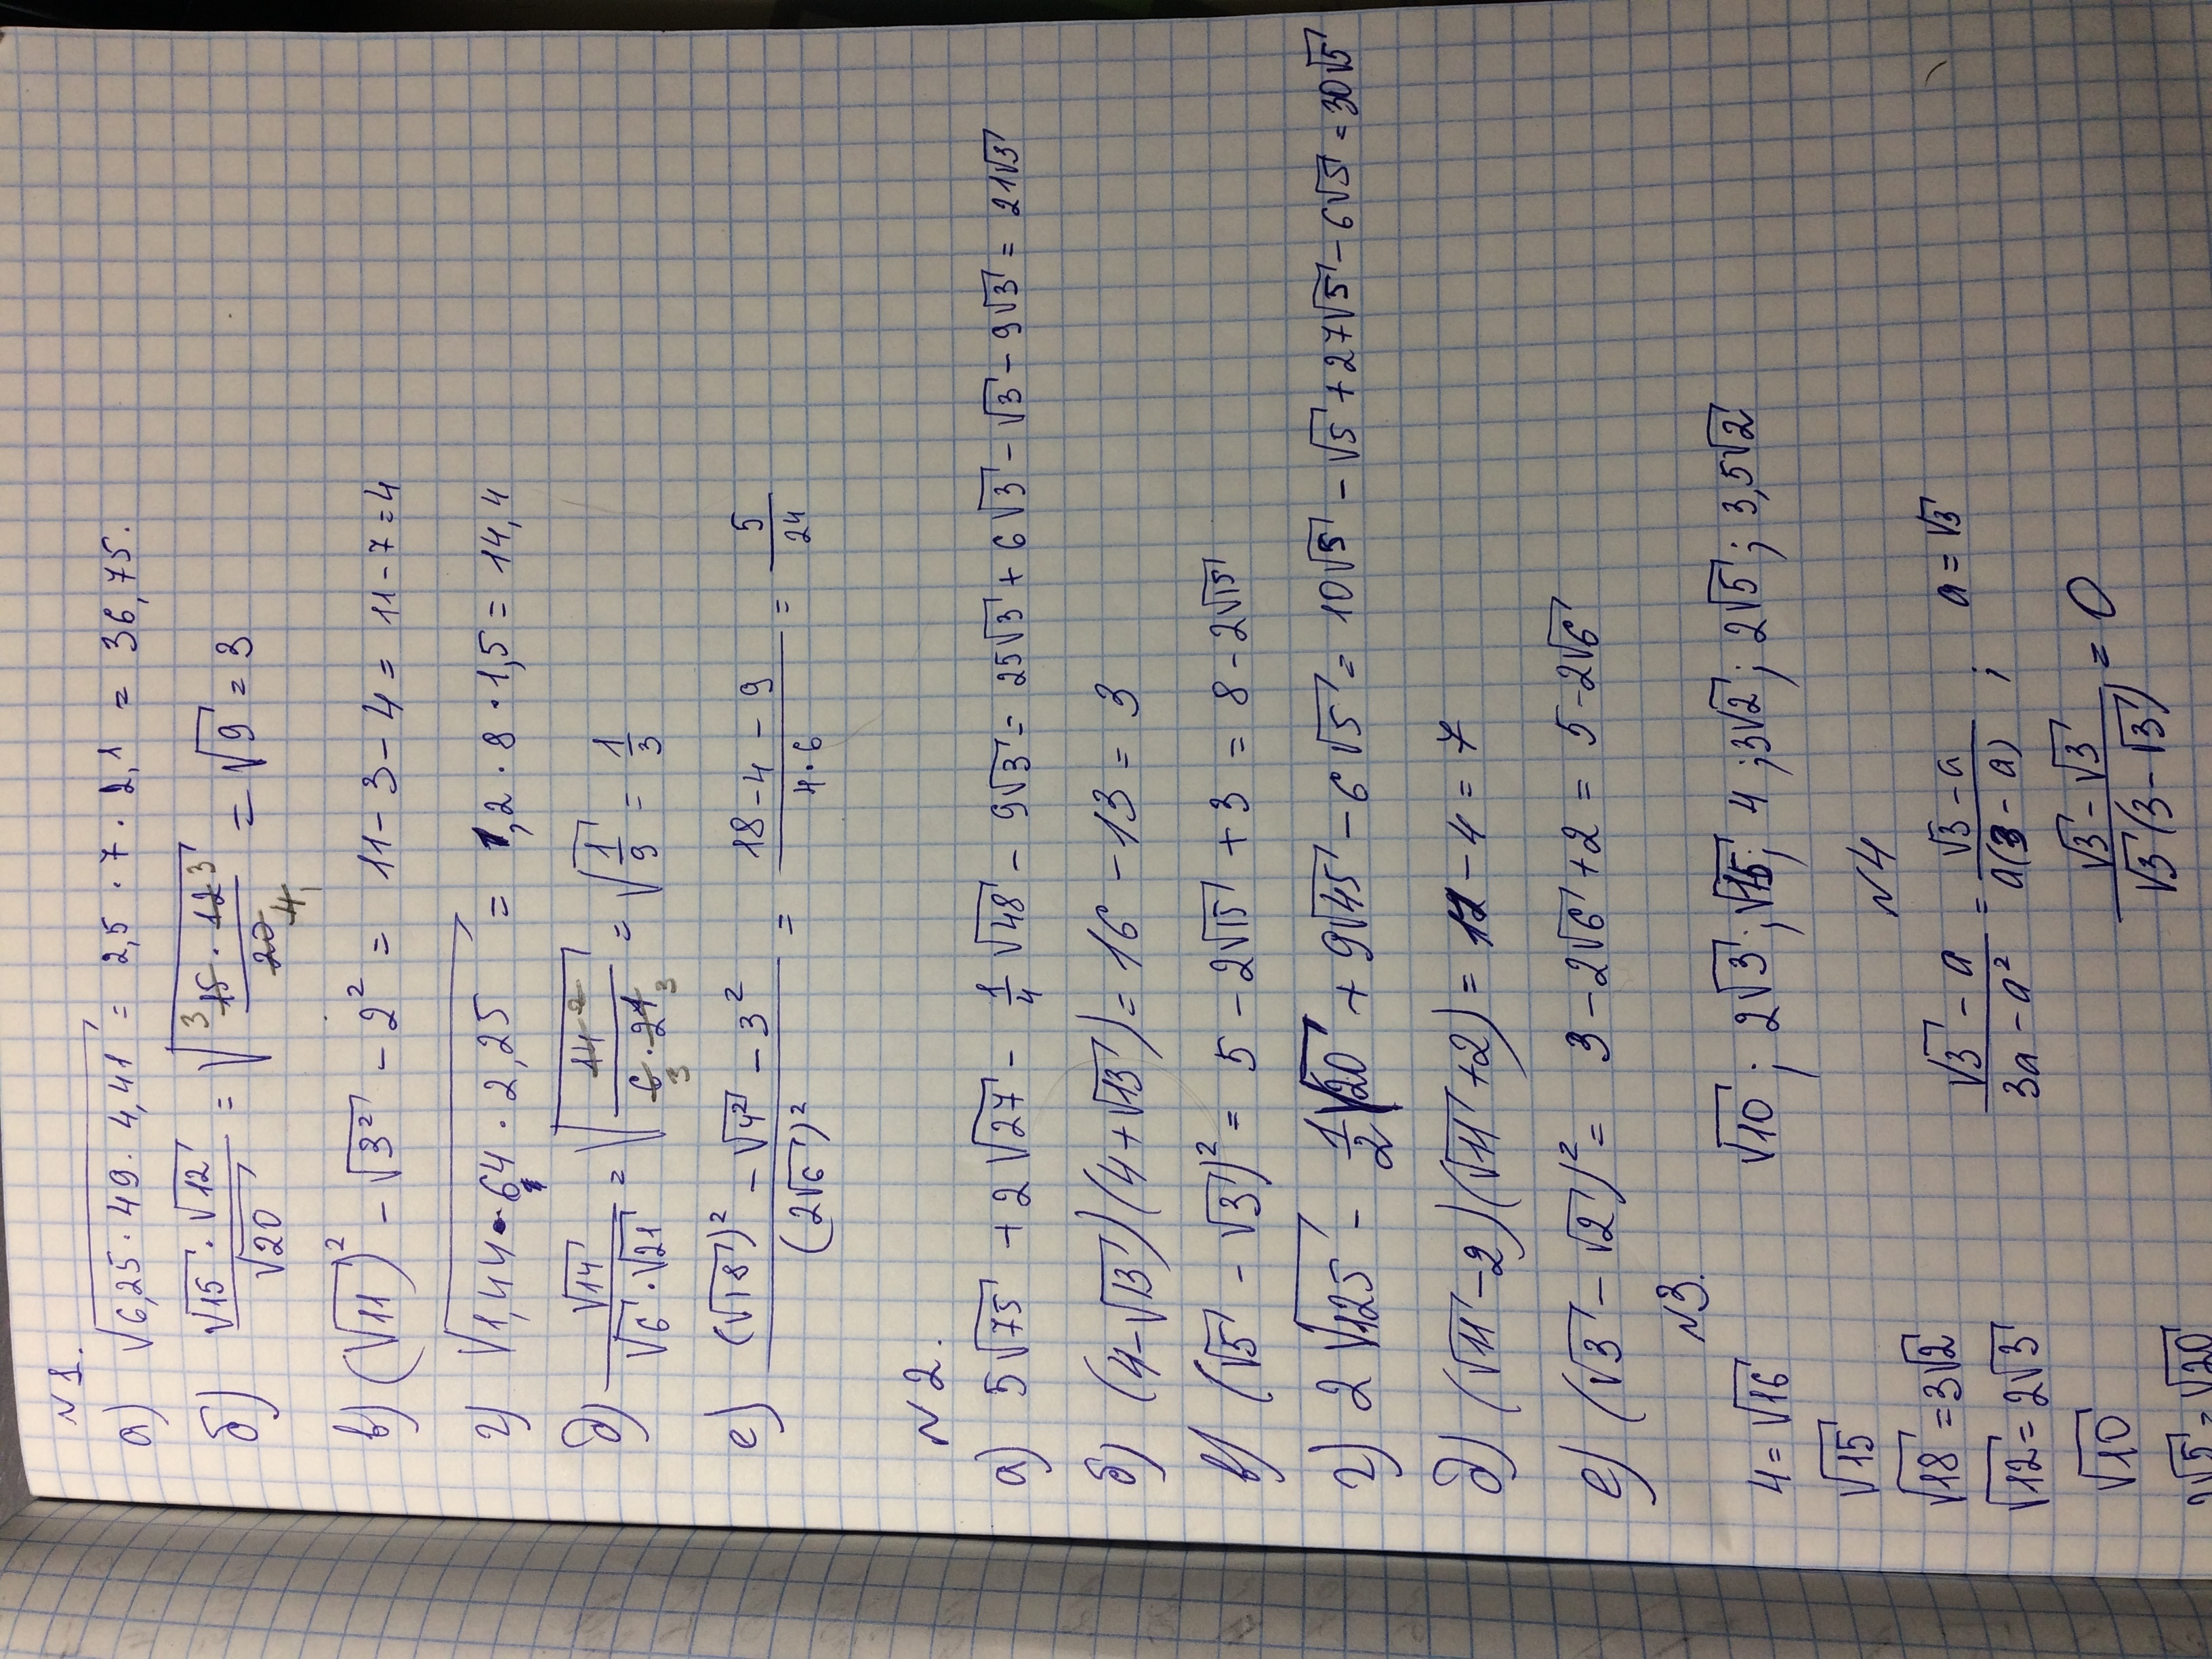 N 1.
а) √6,25 · 49 · 4,41 = 2,5 · 7 · 2,1 = 36,75.
б) (√15 · √12)/√20 = √((15 · 12)/20) = √9 = 3
в) (√11)² - √3² - 2² = 11 - 3 - 4 = 11 - 7 = 4
г) √1,44 · 64 · 2,25 = 1,2 · 8 · 1,5 = 14,4
д) √14/(√6 · √21) = √(14/(6 · 21)) = √(1/9) = 1/3
е) ((√18)² - √4² - 3²)/(2√6)² = (18 - 4 - 9)/(4 · 6) = 5/24
N 2.
а) 5√75 + 2√27 - 1/4 √48 - 9√3 = 25√3 + 6√3 - √3 - 9√3 = 21√3
б) (4 - √13)(4 + √13) = 16 - 13 = 3
в) (√5 - √3)² = 5 - 2√15 + 3 = 8 - 2√15
г) 2√125 - 1/2 √20 + 9√45 - 6√5 = 10√5 - √5 + 27√5 - 6√5 = 30√5
д) (√11 - 2)(√11 + 2) = 11 - 4 = 7
е) (√3 - √2)² = 3 - 2√6 + 2 = 5 - 2√6
N3.
4 = √16
√10 ; 2√3 ; √15; 4 ; 3√2 ; 2√5 ; 3,5√2
√15
√18 = 3√2
√12 = 2√3
√10
2√5 = √20
N4
(√3 - a)/(3a - a²) = (√3 - a)/(a(3 - a)) ; a = √3
(√3 - √3)/(√3(3 - √3)) = 0